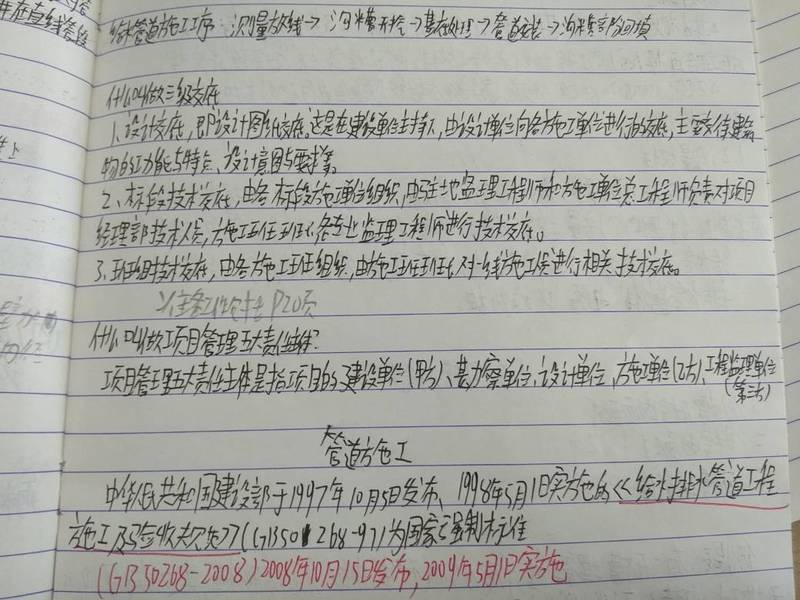 给水管道施工工序：测量放线→沟槽开挖→基础处理→管道安装→沟槽部分回填
什么叫做三级交底
1、设计交底，即设计图纸交底。这是在建设单位主持下，由设计单位向各施工单位进行的交底，主要交待建筑
物的功能与特点、设计意图与要求等。
2、标段技术交底，由各标段施工单位组织，由驻地监理工程师和施工单位总工程师负责对项目
经理部技术人员，施工班班长、各专业监理工程师进行技术交底。
3、班组技术交底，由各施工班组组织，由施工班班长对一线施工人员进行相关技术交底。
准备工作 P20页
什么叫做项目管理五大责任主体?
项目管理五大责任主体是指项目的建设单位(甲方)、勘察单位、设计单位、施工单位(乙方)、工程监理单位
(第三方)
管道施工
中华人民共和国建设部于1997年10月5日发布、1998年5月1日实施的《给水排水管道工程
施工及验收规范》(GB50268-97)为国家强制标准
(GB50268-2008)2008年10月15日发布，2009年5月1日实施